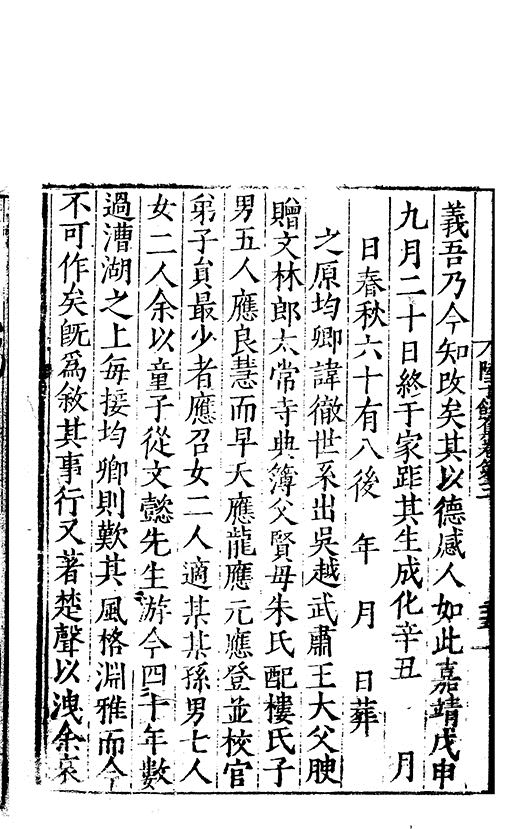 義吾乃今知改矣其以德感人如此嘉靖戊申
九月二十日終于家距其生成化辛丑　月
日春秋六十有八後　年　月　日葬
之原均卿諱徹世系出吳越武肅王大父腴
贈文林郎太常寺典簿父賢母朱氏配樓氏子
男五人應良慧而早夭應龍應元應登並校官
弟子員最少者應召女二人適某某孫男七人
女二人余以童子從文懿先生游今四十年數
過漕湖之上每接均卿則歎其風格淵雅而今
不可作矣旣爲敘其事行又著楚聲以洩余哀